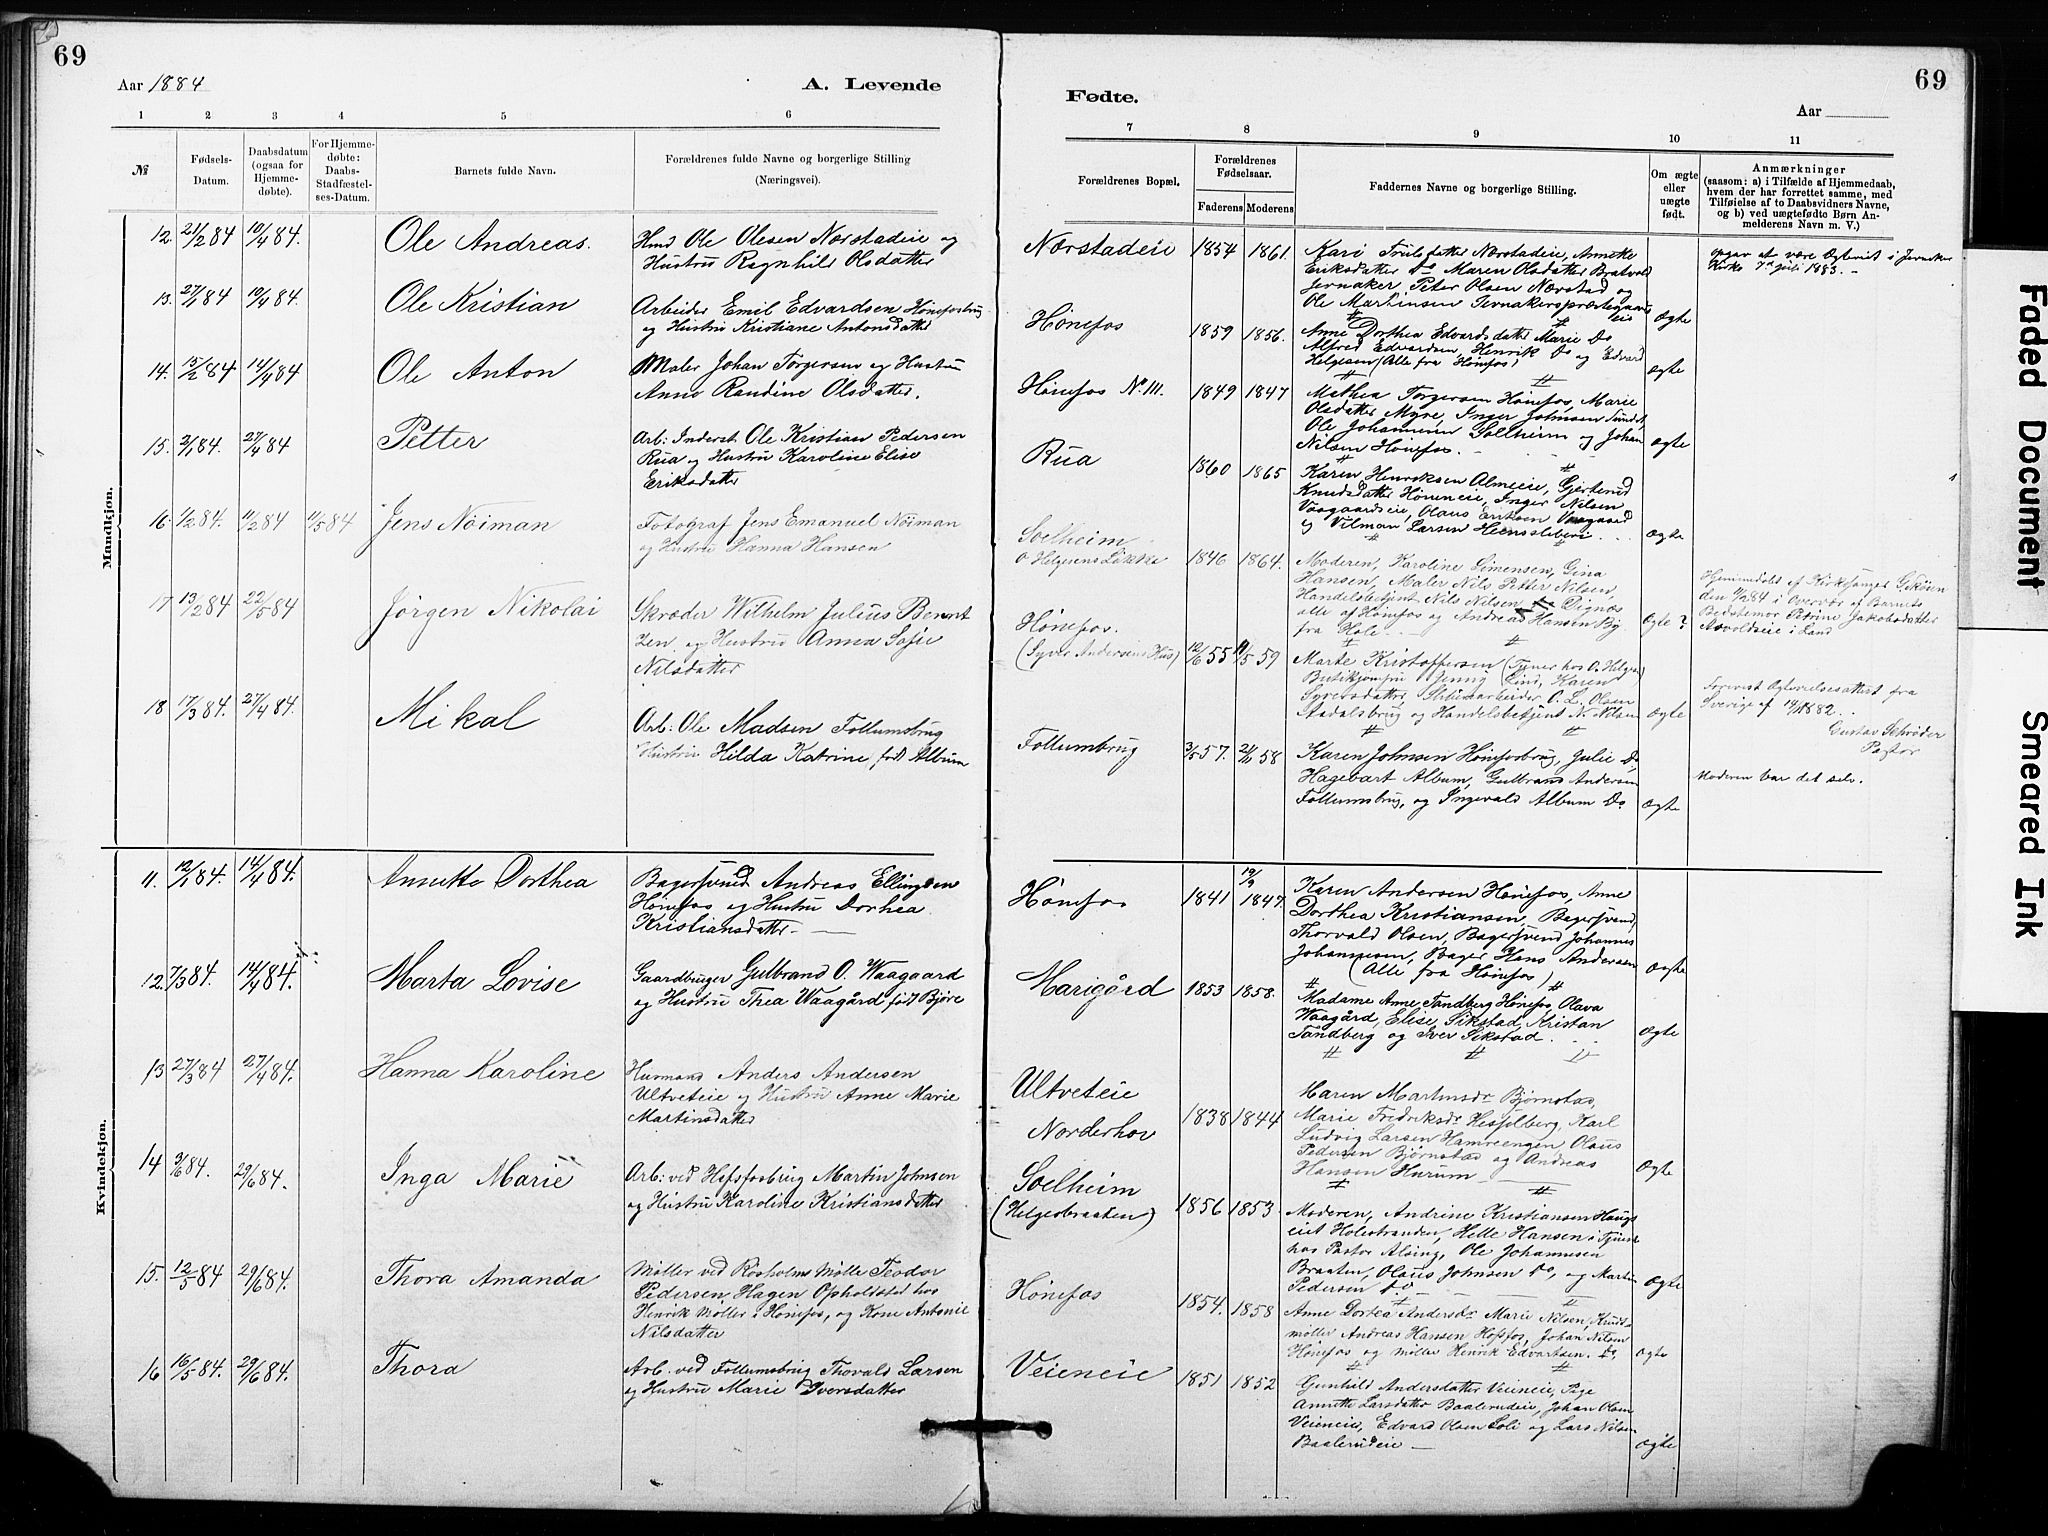 69
Aar 1884
A. Levende
1 2 3 4 5 6
№
Fødsels-
Datum.
Daabsdatum
(ogsaa for
Hjemme-
døbte).
For Hjemme-
døbte:
Daabs-
Stadfæstel-
ses-Datum.
Barnets fulde Navn.
Forældrenes fulde Navne og borgerlige Stilling
(Næringsvei).
Mandkjøn.
12. 21/2 84 10/4 84. Ole Andreas.
Husmd Ole Olesen Nærstadeie og
Hustru Ragnhild Olsdatter
13. 27/1 84 10/4 84. Ole Kristian
Arbeider Emil Edvardsen Hönefosbrug
og Hustru Kristiane Antonsdatter
14. 15/2 84 14/4 84 Ole Anton
Maler Johan Torgersen og Hustru
Anne Randine Olsdatter.
15. 2/1 84. 27/4 84 Petter
Arb: Inderst Ole Kristian Pedersen
Rua og Hustru Karoline Elise
Eriksdatter
16. 1/2 84. 11/2 84 11/5 84 Jens Nöiman
Fotograf Jens Emanuel Nöiman
og Hustru Hanna Hansen
17 13/2 84 22/5 84 Jörgen Nikolai
Skræder Wilhelm Julius Bernt
zen og Hustru Anna Sofie
Nilsdatter
18 17/3 84. 27/4 84. Mikal
Arb: Ole Madsen Follumsbrug
Hustru Hilda Katrine född Album
Kvindekjøn.
11. 12/1 84. 14/4 84. Annette Dorthea
Bagersvend Andreas Ellingsen
Hönefos og Hustru Dorhea
Kristiansdatter
12. 7/3 84. 14/4 84. Marta Lovise
Gaardbruger Gulbrand O. Waagaard
og Hustru Thea Waagård født Björe
13 27/3 84 27/4 84. Hanna Karoline
Husmand Anders Andersen
Ultveteie og Hustru Anne Marie
Martinsdatter
14 3/6 84. 29/6 84. Inga Marie
Arb: ved Hofsfosbrug Martin Johnsen
og Hustru Karoline Kristiansdatter
15. 12/5 84 29/6 84. Thora Amanda
Möller ved Rosholms Mölle Teodor
Pedersen Hagen Opholdsted hos
Henrik Möller i Hönefos, og Kone Antonie
Nilsdatter
16 16/5 84. 29/6 84. Thora
Arb. ved Follumsbrug Thorvald Larsen
og Hustru Marie Iversdatter
69
Fødte.
Aar
7 8 9 10 11
Forældrenes Bopæl.
Forældrenes
Fødselsaar.
Faderens Moderens
Faddernes Navne og borgerlige Stilling.
Om ægte
eller
uægte
født.
Anmærkninger
(saasom: a) i Tilfælde af Hjemmedaab,
hvem der har forrettet samme, med
Tilføielse af to Daabsvidners Navne,
og b) ved uægtefødte Børn An-
melderens Navn m. V.)
Nærstadeie 1854 1861.
Kari Trulsdatter Nærstadeie, Annette
Eriksdatter Do Maren Olsdatter Bratvold
Jevnaker Peter Olsen Nærstad og
Ole Martinsen Jevnakerspræstegaards
eie Ægte
opgav at være Ægteviet i Jevnaker
Kirke 7d juli 1883. -
Hönefos 1859 1856.
Anne Dorthea Edvardsdatter Marie Do
Alfred Edvardsen, Henrik Do og Edvard
Helgesen (Alle fra Hönefos) Ægte
Hönefos No 111. 1849 1847
Mathea Torgersen Hönefos, Marie
Olsdatter Myre, Inger Johnsen Sundet,
Ole Johannesen Solheim og Johan
Nilsen Hönefos. Ægte
Rua 1860 1865
Karen Henriksen Almeeie, Gjertrud
Knudsdatter Höneneie, Inger Nilsen
Vaagaardseie, Olaus Eriksen Vaagaard
og Vilman Larsen Ægte
Soelheim
O Helgesens Lökke 1846 1864.
Moderen, Karoline Simensen, Gina
Hansen, Maler Nils Petter Nilsen,
Handelsbetjent Nils Nilsen
alle af Hönefos og Andreas Hansen By
fra Hole Ægte?
Hjemmedøbt af Kirkesanger G. Sköien
den 11/2 84 i Overvær af Barnets
Bedstemor Petrine Jakobsdatter
Aavoldseie i Land
Hönefos.
(Syver Andersens Hus) 12/6 55 11/5 59
Marte Kristoffersen (Tjener hos O. Helgesen)
Butikjomfru Jenny Lind, Karen
Syversdatter, Sliberiarbeider C. L. Olsen
Aadalsbrug og Handelsbetjent N. Nilsen Ægte
Forevist Ægtevielsesattest fra
Sverige af 19/11 1882.
Gustav Schröder
Pastor
Follumbrug 3/5 57. 24/11 58
Karen Johnsen Hönefosbrug, Julie Do,
Hagebart Album, Gulbrand Andersen
Follumsbrug, og Ingevald Album Do. Ægte
Moderen bar det selv.
Hönefos 1841 19/9 1847.
Karen Andersen Hönefos, Anne
Dorthea Kristiansen, Bagersvend
Thorvald Olsen, Bagersvend Johannes
Johannesen, Bager Hans Andersen
(Alle fra Hönefos) Ægte
Marigård 1853 1858.
Madame Anne Tandberg Hönefos, Olava
Waagård, Elise Sikstad, Kristan
Tandberg og Iver Sikstad. Ægte
Ultveteie
Norderhov 1838 1844
Maren Martinsdr Björnstad,
Marie Fredriksdr Hesselberg, Karl
Ludvig Larsen Hamreengen Olaus
Pedersen Björnstad og Andreas
Hansen Hurum Ægte
Soelheim
(Helgesbraaten) 1856 1853
Moderen, Andrine Kristiansen Haugs
eiet Holestranden, Helle Hansen i Tjeneste
hos Pastor Alsing, Ole Johannesen
Braaten, Olaus Johnsen Do, og Martin
Pedersen Do Ægte
Hönefos 1854. 1858
Anne Dortea Andersdr Marie Nilsen, Kunst
möller Andreas Hansen Hofsfos, Johan Nilsen
Hönefos og möller Henrik Edvartsen. Do, Ægte
Veieneie 1851 1852
Gunhild Andersdatter Veieneie, Pige
Annette Larsdatter Baalerudeie, Johan Olsen
Veieneie, Edvard Olsen Loli og Lars Nilsen
Baalerudeie Ægte
Faded Document
Smeared Ink